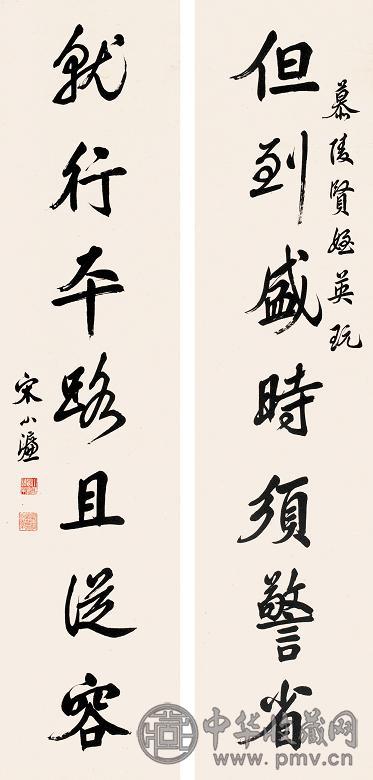 慕陵賢姪英玩
但到盛時須警省
就行本路且從容
宋小濂
中华收藏网
www.pmv.cn